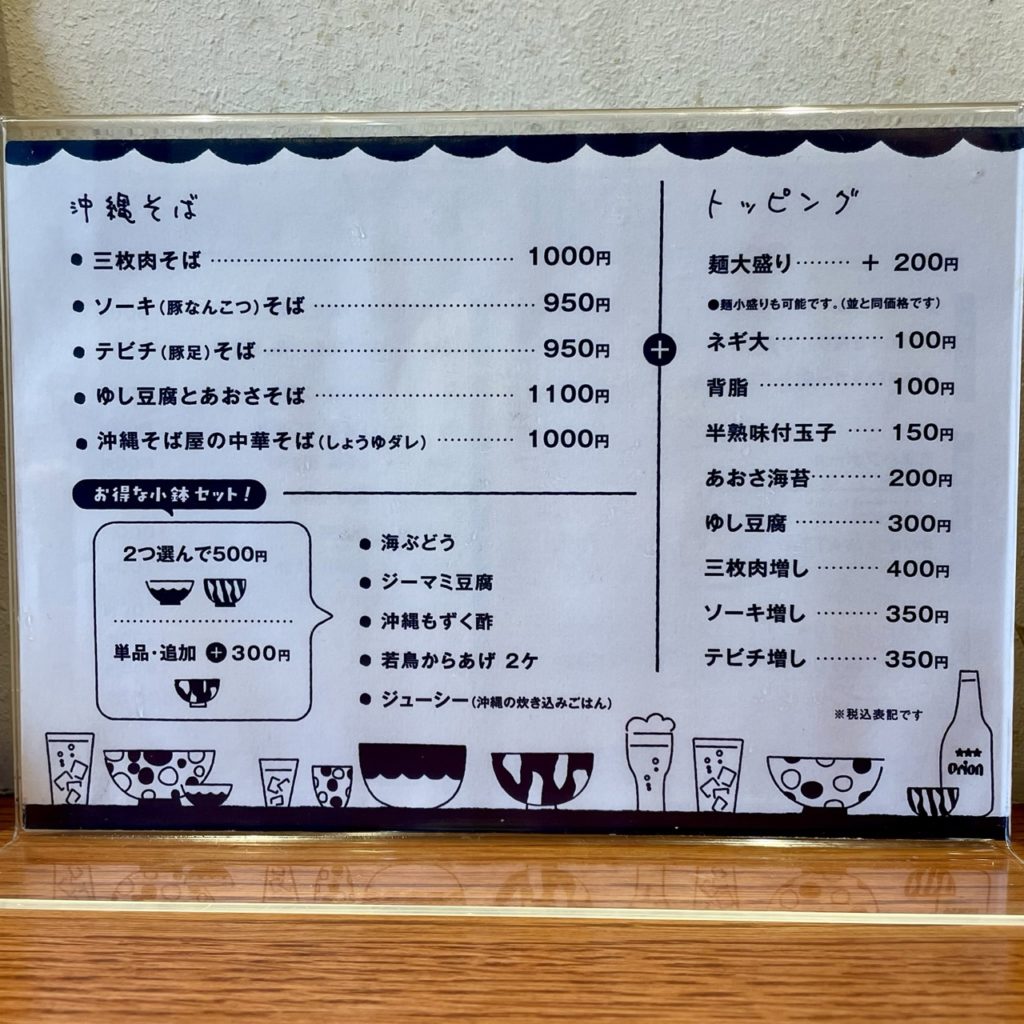 沖縄そば
● 三枚肉そば ………… 1000円
● ソーキ(豚なんこつ)そば ………… 950円
● テビチ(豚足)そば ………… 950円
● ゆし豆腐とあおさそば ………… 1100円
● 沖縄そば屋の中華そば(しょうゆダレ) ……… 1000円
お得な小鉢セット!
2つ選んで500円
単品・追加 + 300円
● 海ぶどう
● ジーマミ豆腐
● 沖縄もずく酢
● 若鳥からあげ 2ケ
● ジューシー(沖縄の炊き込みごはん)
+
トッピング
麺大盛り …… + 200円
●麺小盛りも可能です。(並と同価格です)
ネギ大 ………… 100円
背脂 ………… 100円
半熟味付玉子 …… 150円
あおさ海苔 ……… 200円
ゆし豆腐 ……… 300円
三枚肉増し ……… 400円
ソーキ増し ……… 350円
テビチ増し ……… 350円
※税込表記です
★★★
Orion